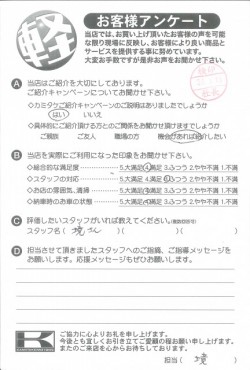 軽
お客様アンケート
当店では、お買い上げ頂いたお客様の声を可能
な限り現場に反映し、お客様により良い商品と
サービスを提供する事に努めています。
大変お手数ですが是非お声をお聞かせ下さい。
A 当店はご紹介を大切にしております。
ご紹介キャンペーンについてお聞かせ下さい。
◇カミタケご紹介キャンペーンのご説明はありましたでしょうか
はい いいえ
◇具体的にご紹介頂ける方とのご関係をお聞かせ頂けますでしょうか
ご親族 ご友人 職場の方 機会があれば紹介したい
B 当店を実際にご利用になった印象をお聞かせ下さい。
◇総合的な満足度 5.大満足 4.満足 3.ふつう 2.やや不満 1.不満
◇スタッフの対応 5.大満足 4.満足 3.ふつう 2.やや不満 1.不満
◇お店の雰囲気、清掃 5.大満足 4.満足 3.ふつう 2.やや不満 1.不満
◇納車時のお車の状態 5.大満足 4.満足 3.ふつう 2.やや不満 1.不満
C 評価したいスタッフがいれば教えてください。
スタッフ名( 境さん )
D 担当させて頂きましたスタッフへのご指摘、ご指導メッセージを
お願いします。応援メッセージもぜひお願いします。
K
ご協力に心よりお礼を申し上げます。
今後とも宜しくお引き立てご愛顧の程お願い申し上げます。
またのご来店を心からお待ちしております。
担当( 境 )